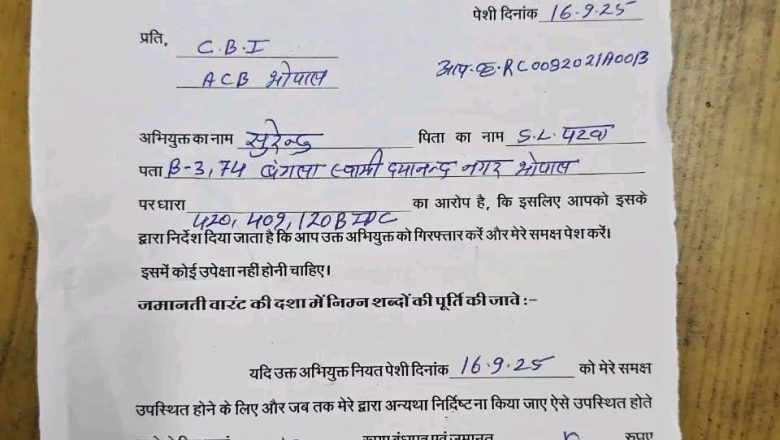 पेशी दिनांक 16.9.25
प्रति,
C.B.I
ACB भोपाल
अप.क्र.RC0092021A00
अभियुक्त का नाम सुरेन्द्र पिता का नाम S.L. पटवा
पता B-3, 74 बंगला स्वामी दयानन्द नगर भोपाल
पर धारा 420, 409, 120B IPC का आरोप है, कि इसलिए आपको इसके
द्वारा निर्देश दिया जाता है कि आप उक्त अभियुक्त को गिरफ्तार करें और मेरे समक्ष पेश करें।
इसमें कोई उपेक्षा नहीं होनी चाहिए।
जमानती वारंट की दशा में निम्न शब्दों की पूर्ति की जावे :-
यदि उक्त अभियुक्त नियत पेशी दिनांक 16.9.25 को मेरे समक्ष
उपस्थित होने के लिए और जब तक मेरे द्वारा अन्यथा निर्दिष्ट ना किया जाए ऐसे उपस्थित होते
रुपए